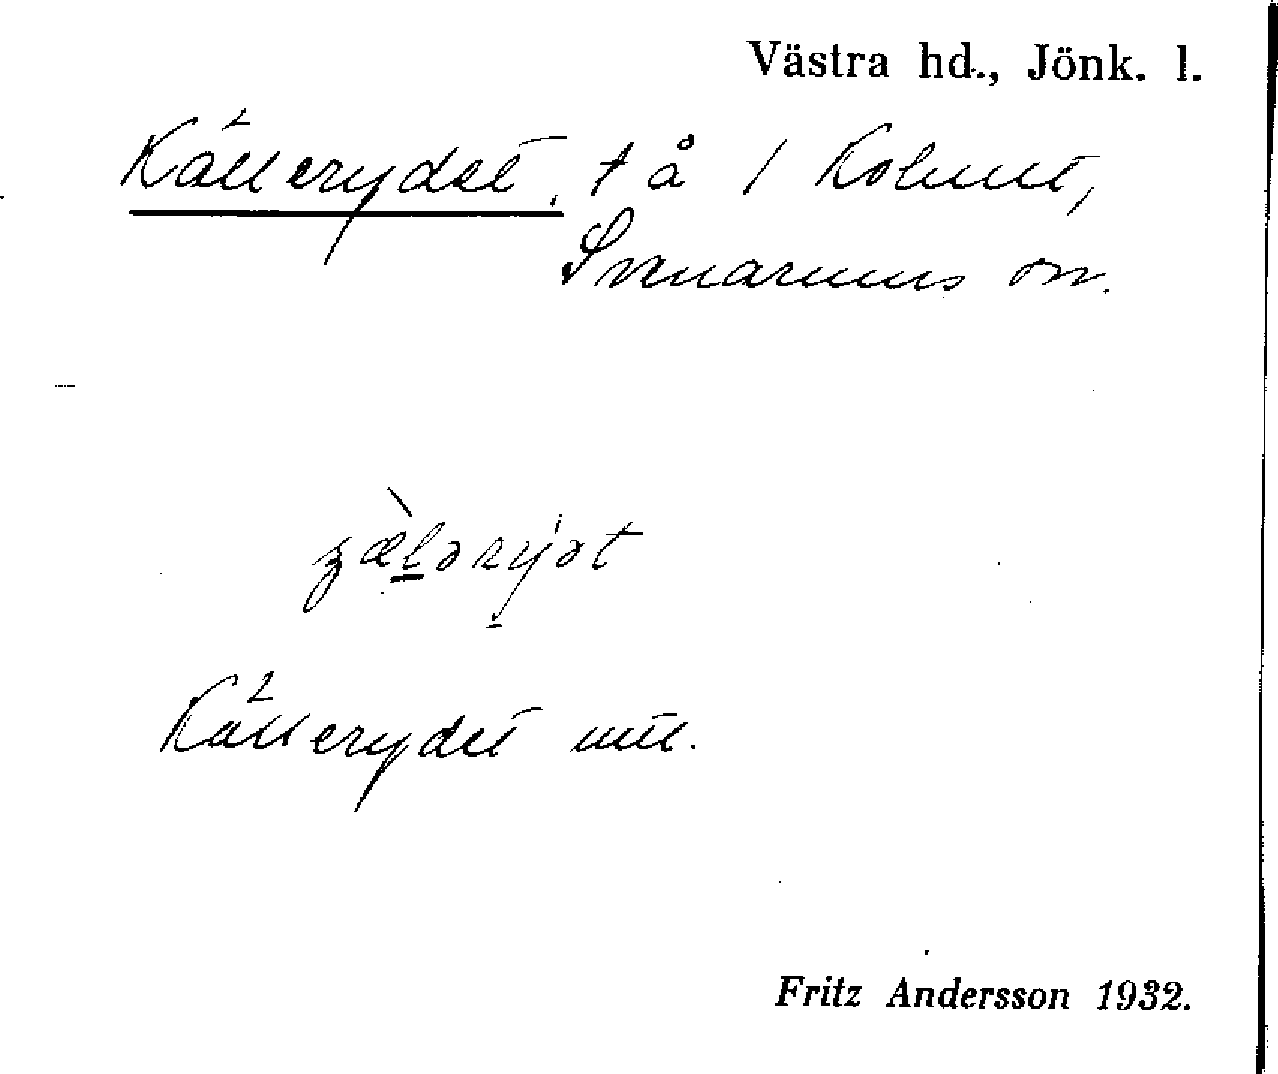 Västra hd., Jönk. l.
Källerydet, t å 1 Kolunt,
Svenarums sn.
Källerydet
Fritz Andersson 1932.